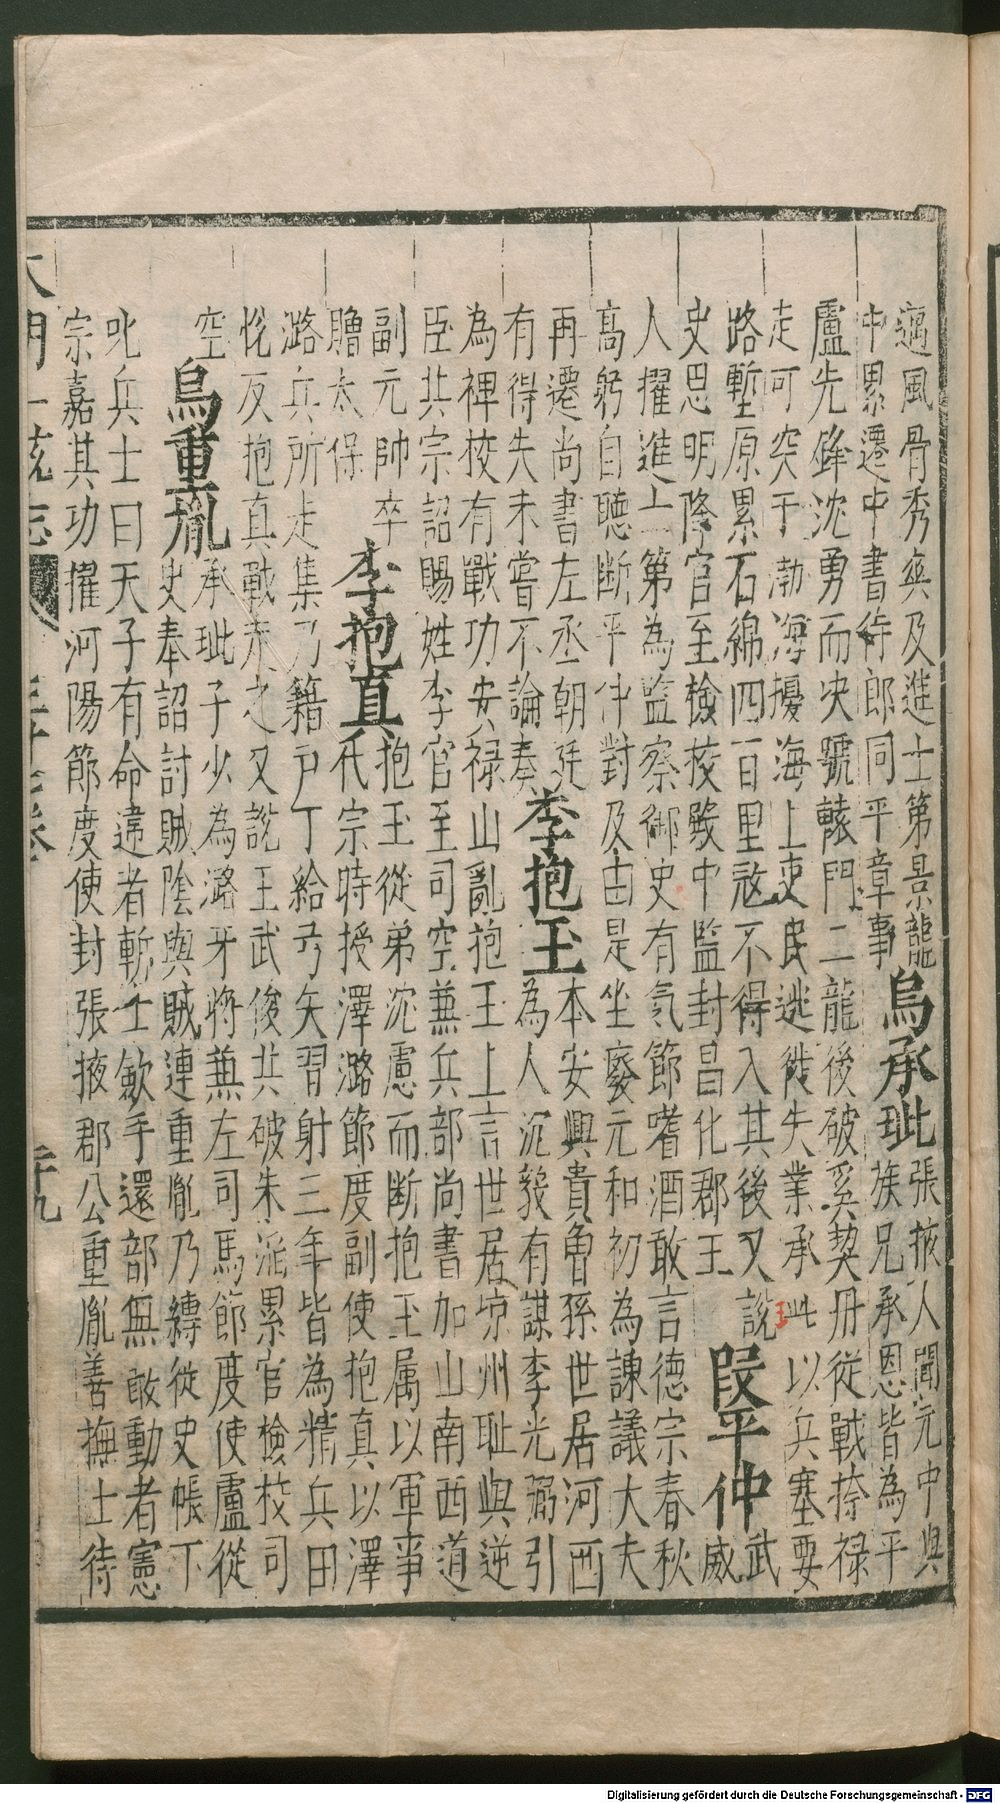 邁風骨秀與及進士第景龍
中累遷中書侍郎同平章事
烏承玼
張掖人開元中與
族兄承恩皆為平
盧先鋒沈勇而决號轅門二龍後破奚契丹從戰捺禄
走可突于渤海擾海上吏民逃徙失業承玼以兵塞要
路塹原累石綿四百里㓂不得入其後又說
史思明降官至檢校殿中監封昌化郡王
王
段平仲
武
威
人擢進士第為監察御史有氣節嗜酒敢言德宗春秋
高躬自聽断平仲對及由是坐廢元和初為諫議大夫
再遷尚書左丞朝廷
有得失未嘗不論奏
李抱玉
本安興貴魯孫世居河西
為人沉毅有謀李光弼引
為裨校有戰功安禄山亂抱玉上言世居凉州耻與逆
臣共宗詔賜姓李官至司空兼兵部尚書加山南西道
副元帥卒
贈太保
李抱真
抱玉從弟沈慮而断抱玉属以軍事
代宗時授澤潞節度副使抱真以澤
潞兵所走集乃籍户丁給弓矢習射三年皆為精兵田
恱反抱真戰走之又說王武俊共破朱滔累官檢校司
空
烏重胤
承玼子少為潞牙將兼左司馬節度使盧從
史奉詔討賊陰與賊連重胤乃縳從史帳下
叱兵士曰天子有命違者斬士歛手還部無敢動者憲
宗嘉其功擢河陽節度使封張掖郡公重胤善撫士待
大明一統志
Digitalisierung gefördert durch die Deutsche Forschungsgemeinschaft - DFG